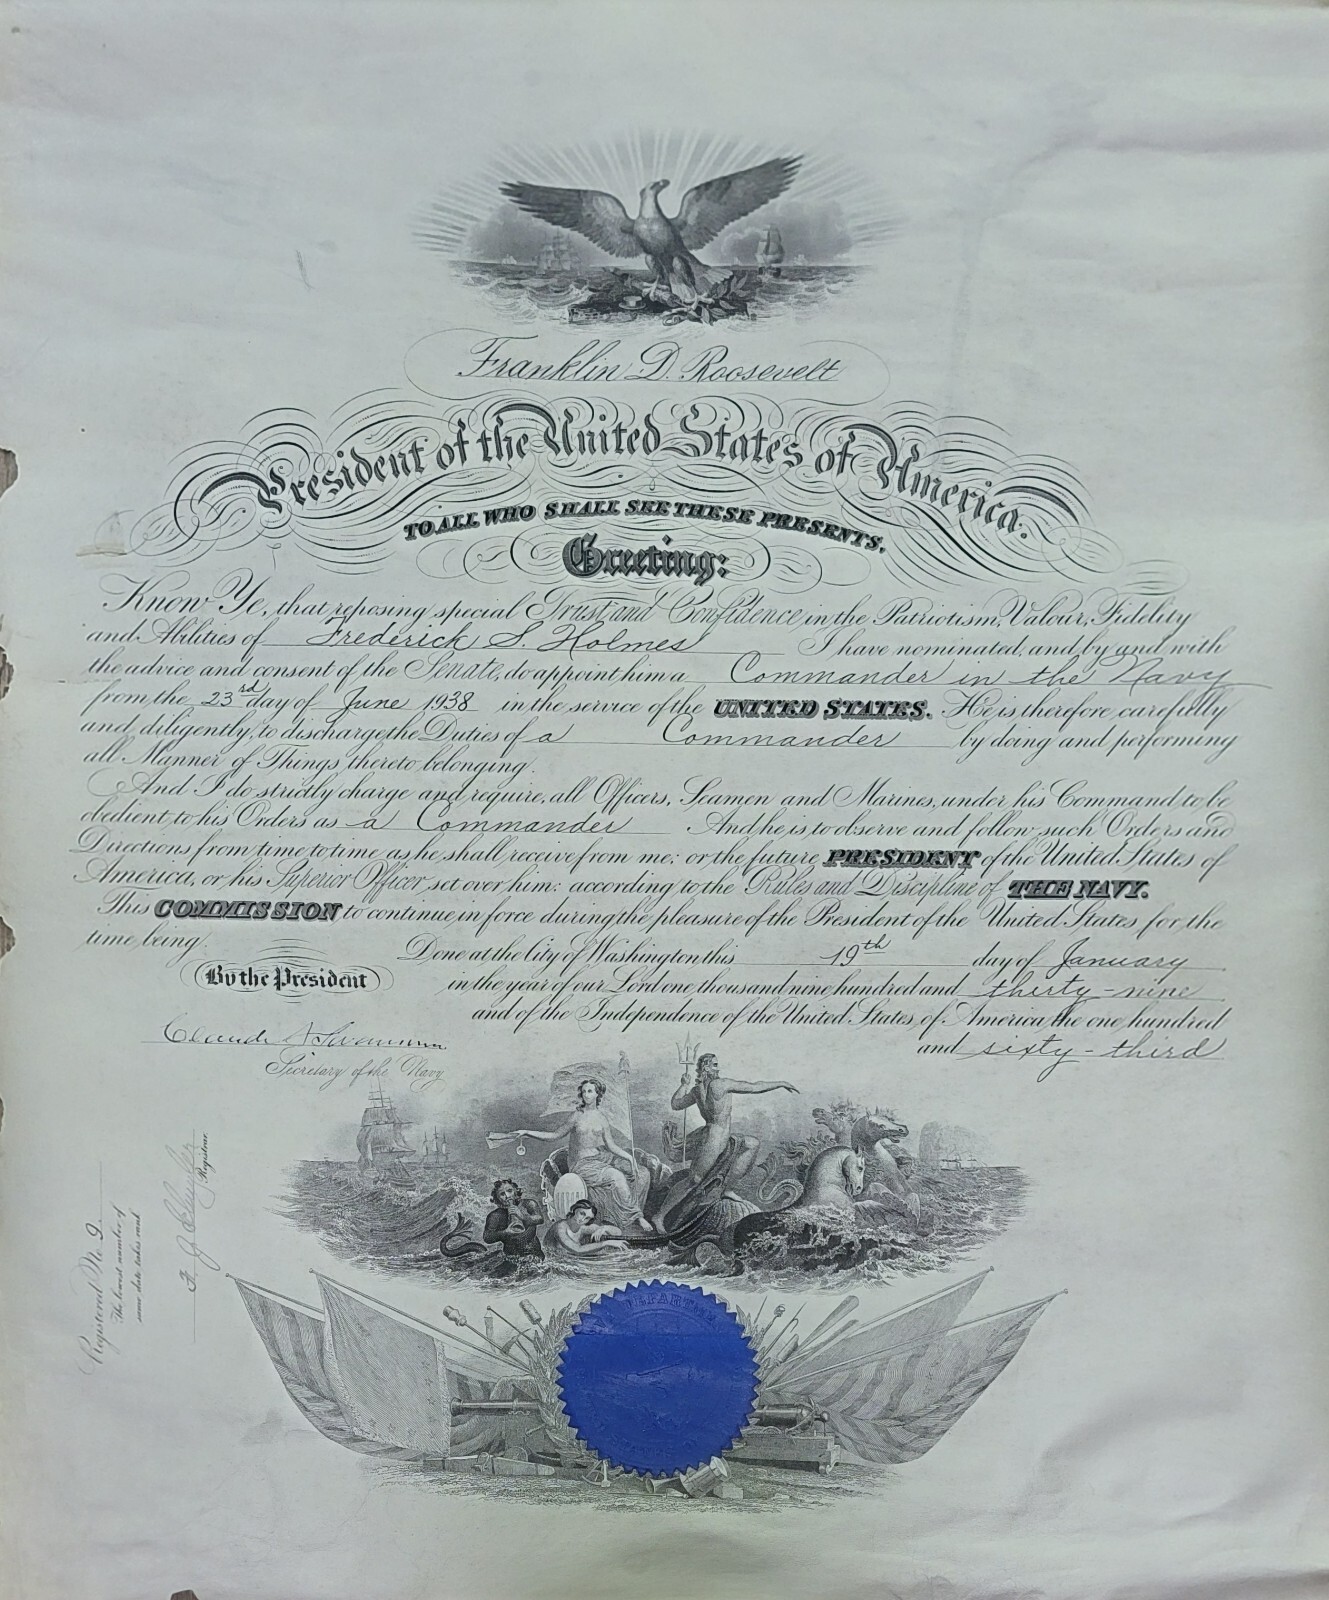 Franklin D. Roosevelt
President of the United States of America.
TO ALL WHO SHALL SEE THESE PRESENTS,
Greeting:
Know Ye, that reposing special Trust and Confidence in the Patriotism, Valour, Fidelity
and Abilities of Frederick S. Holmes I have nominated, and by and with
the advice and consent of the Senate, do appoint him a Commander in the Navy
from the 23rd day of June 1938 in the service of the UNITED STATES. He is therefore carefully
and diligently to discharge the Duties of a Commander by doing and performing
all Manner of Things thereto belonging.
And I do strictly charge and require all Officers, Seamen and Marines, under his Command to be
obedient to his Orders as a Commander And he is to observe and follow such Orders and
Directions from time to time as he shall receive from me; or the future PRESIDENT of the United States of
America, or his Superior Officer set over him: according to the Rules and Discipline of THE NAVY.
This COMMISSION to continue in force during the pleasure of the President of the United States for the
time being.
Done at the City of Washington this 19th day of January
By the President
in the year of our Lord one thousand nine hundred and thirty-nine
and of the Independence of the United States of America the one hundred
and sixty-third
Claude A Swanson
Secretary of the Navy
Registrar.
Registered No 2
The lowest number of
same date takes rank
DEPARTMENT